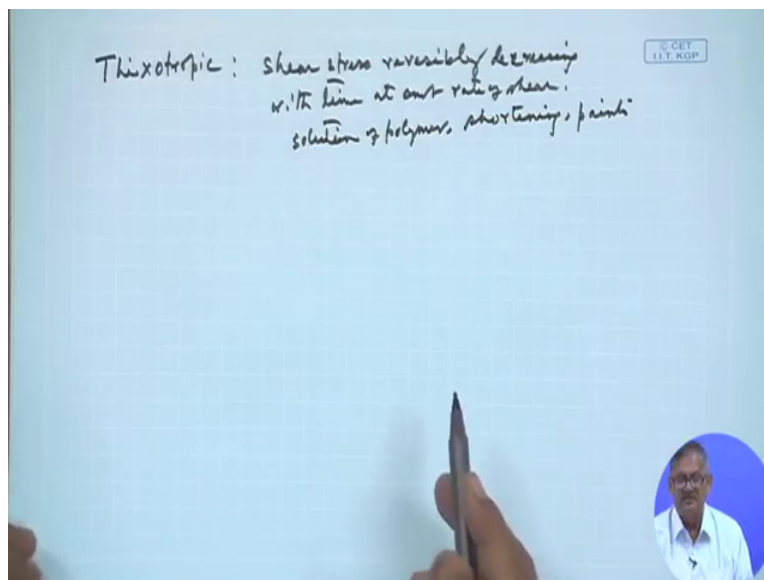 Thixotropic : shear stress reversibly decreasing
with time at const rate of shear.
solution of polymer, shortening, paints
© CET
I.I.T. KGP